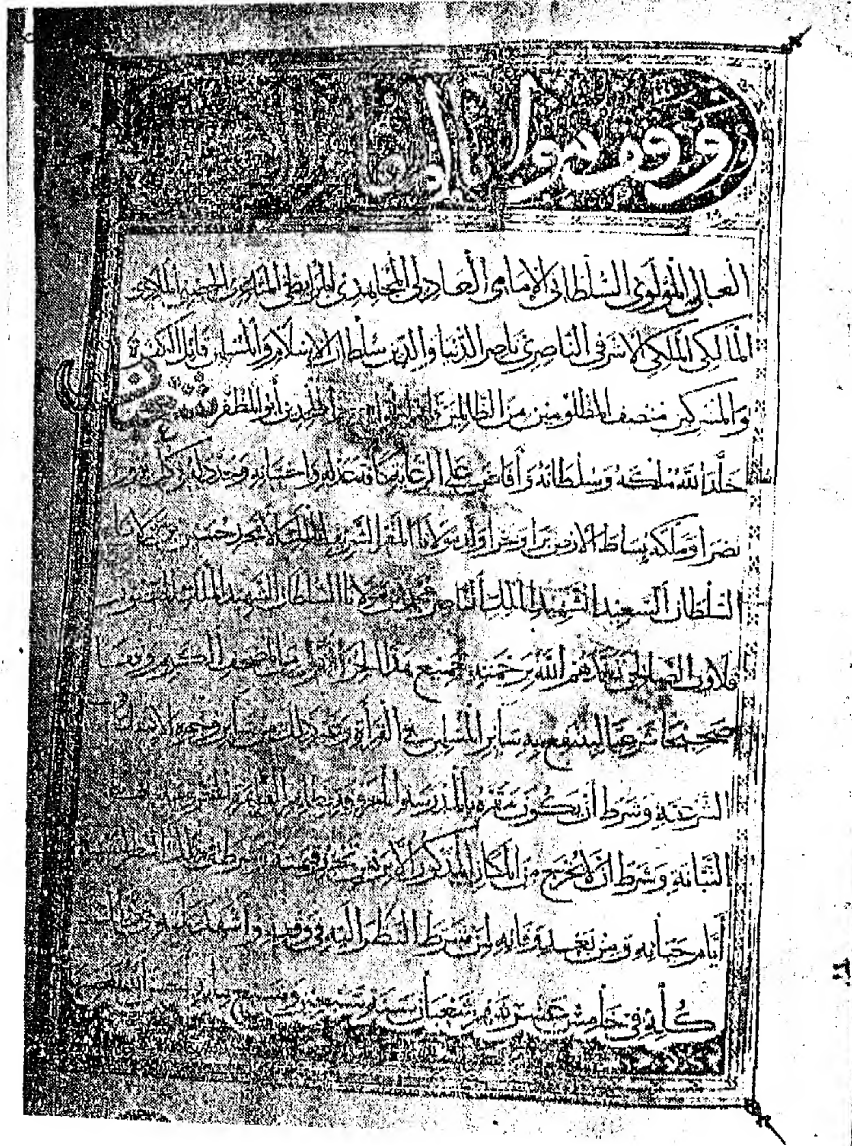 وقف مولانا المقام
العالى المولوى السلطانى الامامى العادلى المجاهدى المرابطى المثاغرى
المالكى الملكى الاشرفى الناصرى ناصر الدنيا والدين سلطان الاسلام والمسلمين قاتل الكفرة
والمشركين منصف المظلومين من الظالمين ابو المظفر
خلد الله ملكه وسلطانه وافاض على الرعايا كافة عدله واحسانه وجدد له فى كل
نصرا وملكه بساط الارض برا وبحرا ولد مولانا المقر الشريف الملك الامجد حسين بن مولانا
السلطان السعيد الشهيد الملك الناصر محمد بن مولانا السلطان الشهيد الملك المنصور
قلاون الصالحى تغمدهم الله برحمته جميع هذا المصحف الكريم وقفا
صحيحا شرعيا لينتفع به ساير المسلمين فى القرأة وغير ذلك من ساير وجوه الانتفاعات
الشرعية وشرط ان يكون مقره بالمدرسة المعروفة بظاهر القاهرة المحروسة
التبانة وشرط ان لا يخرج من المكان المذكور الا برهن يحرز قيمته وشرط النظر لنفسه
ايام حياته ومن بعد لمن شرط النظر اليه فى وقف واشهد عليه بذلك
فى خامس عشر شهر شعبان سنة وسبع ماية